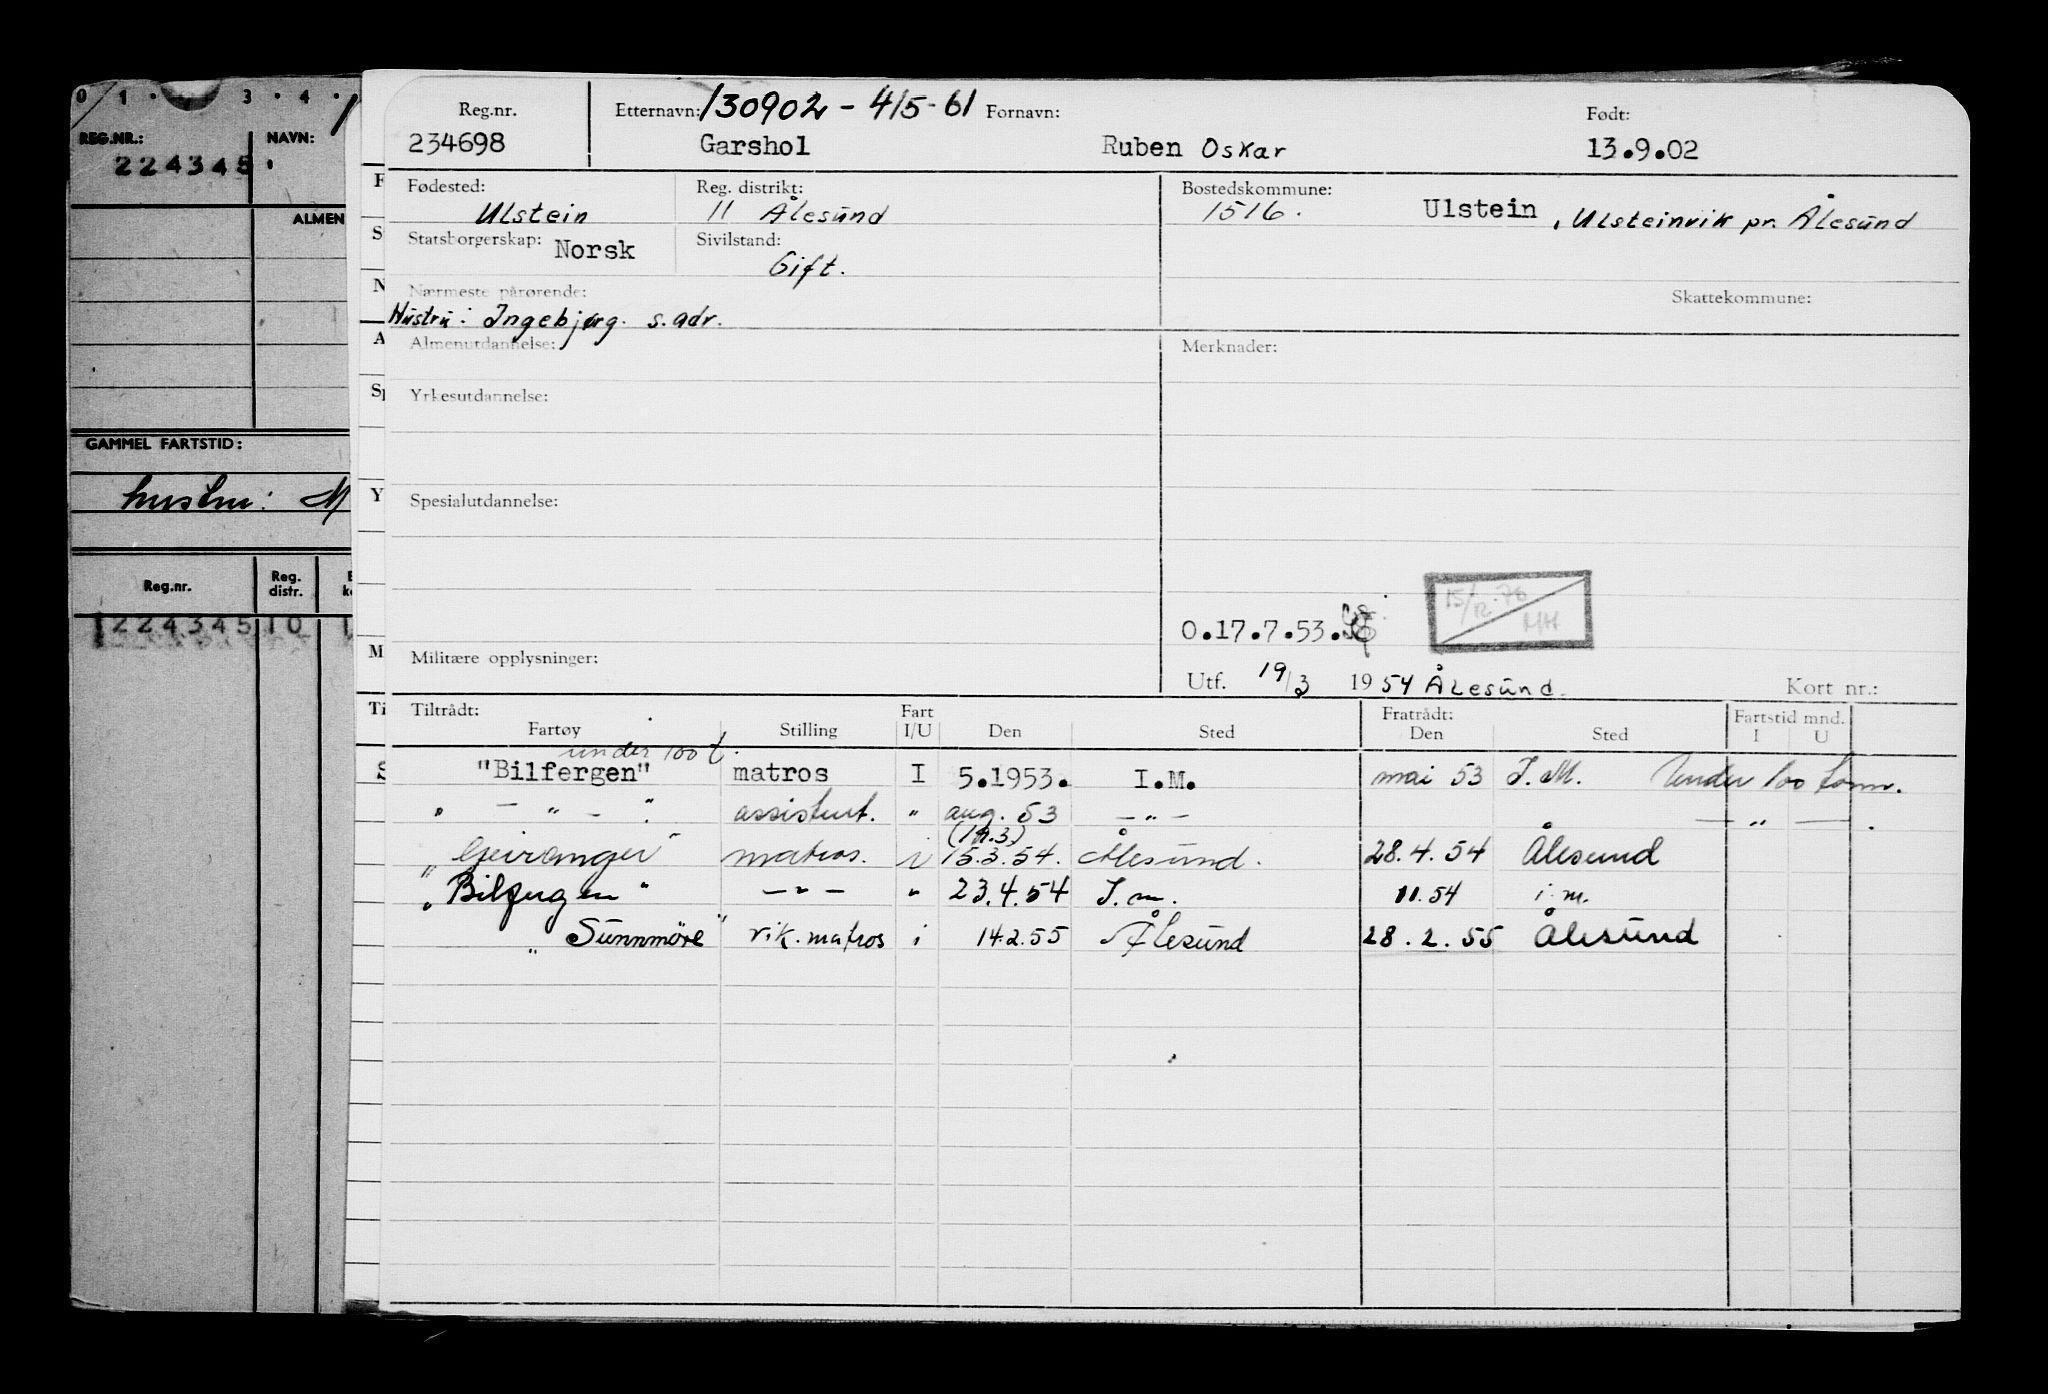 0 1 · 3 · 4 ·
REG.NR.: NAVN:
224345
ALMEN
GAMMEL FARTSTID:
hustru: M
Reg.nr. Reg. distr.
224345 10
Reg.nr. Etternavn: 130902 - 4/5-61 Fornavn: Født:
234698 Garshol Ruben Oskar 13.9.02
Fødested: Reg. distrikt: Bostedskommune:
Ulstein 11 Ålesund 1516. Ulstein, Ulsteinvik pr. Ålesund
Statsborgerskap: Norsk Sivilstand:
Gift.
Nærmeste pårørende: Skattekommune:
Hustru: Ingebjørg. s. adr.
Almenutdannelse: Merknader:
Yrkesutdannelse:
Spesialutdannelse:
15/12.76
MH
O.17.7.53.
Militære opplysninger:
Utf. 19/3 1954 Ålesund. Kort nr.:
Tiltrådt: Fart Fratrådt: Fartstid mnd.
Fartøy Stilling I/U Den Sted Den Sted I U
under 100 t.
"Bilfergen" matros I 5.1953. I.M. mai 53 I.M. Under 100 tonn.
" — " — " assistent. " aug. 53 — " — — " —
(19.3)
"Geiranger" matros. i 15.3.54. Ålesund. 28.4.54 Ålesund
"Bilfergen" — " — " 23.4.54 I.m. 11.54 i.m.
"Sunnmöre" vik. matros i 14.2.55 Ålesund 28.2.55 Ålesund